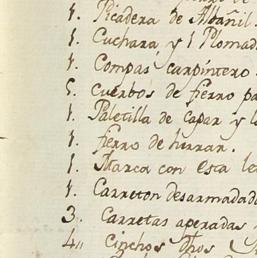 1. Picadera de Albañil.
1. Cuchara y 1 Plomad
1. Compas carpintero.
5. cuerbos de fierro pa
1. Paletilla de capar y
1. fierro de herrar.
1. Marca con esta le
1. Carreton desarmadad
3. Carretas aperadas
4,, Cinchos dhos